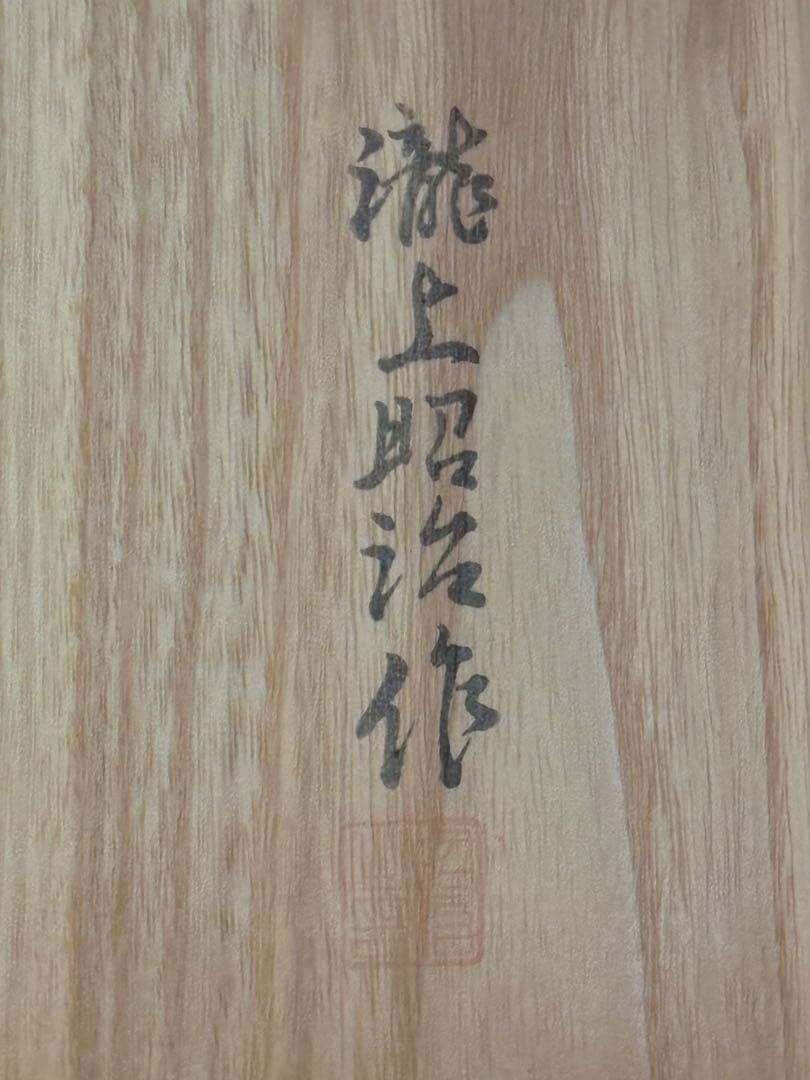 瀧上昭治作